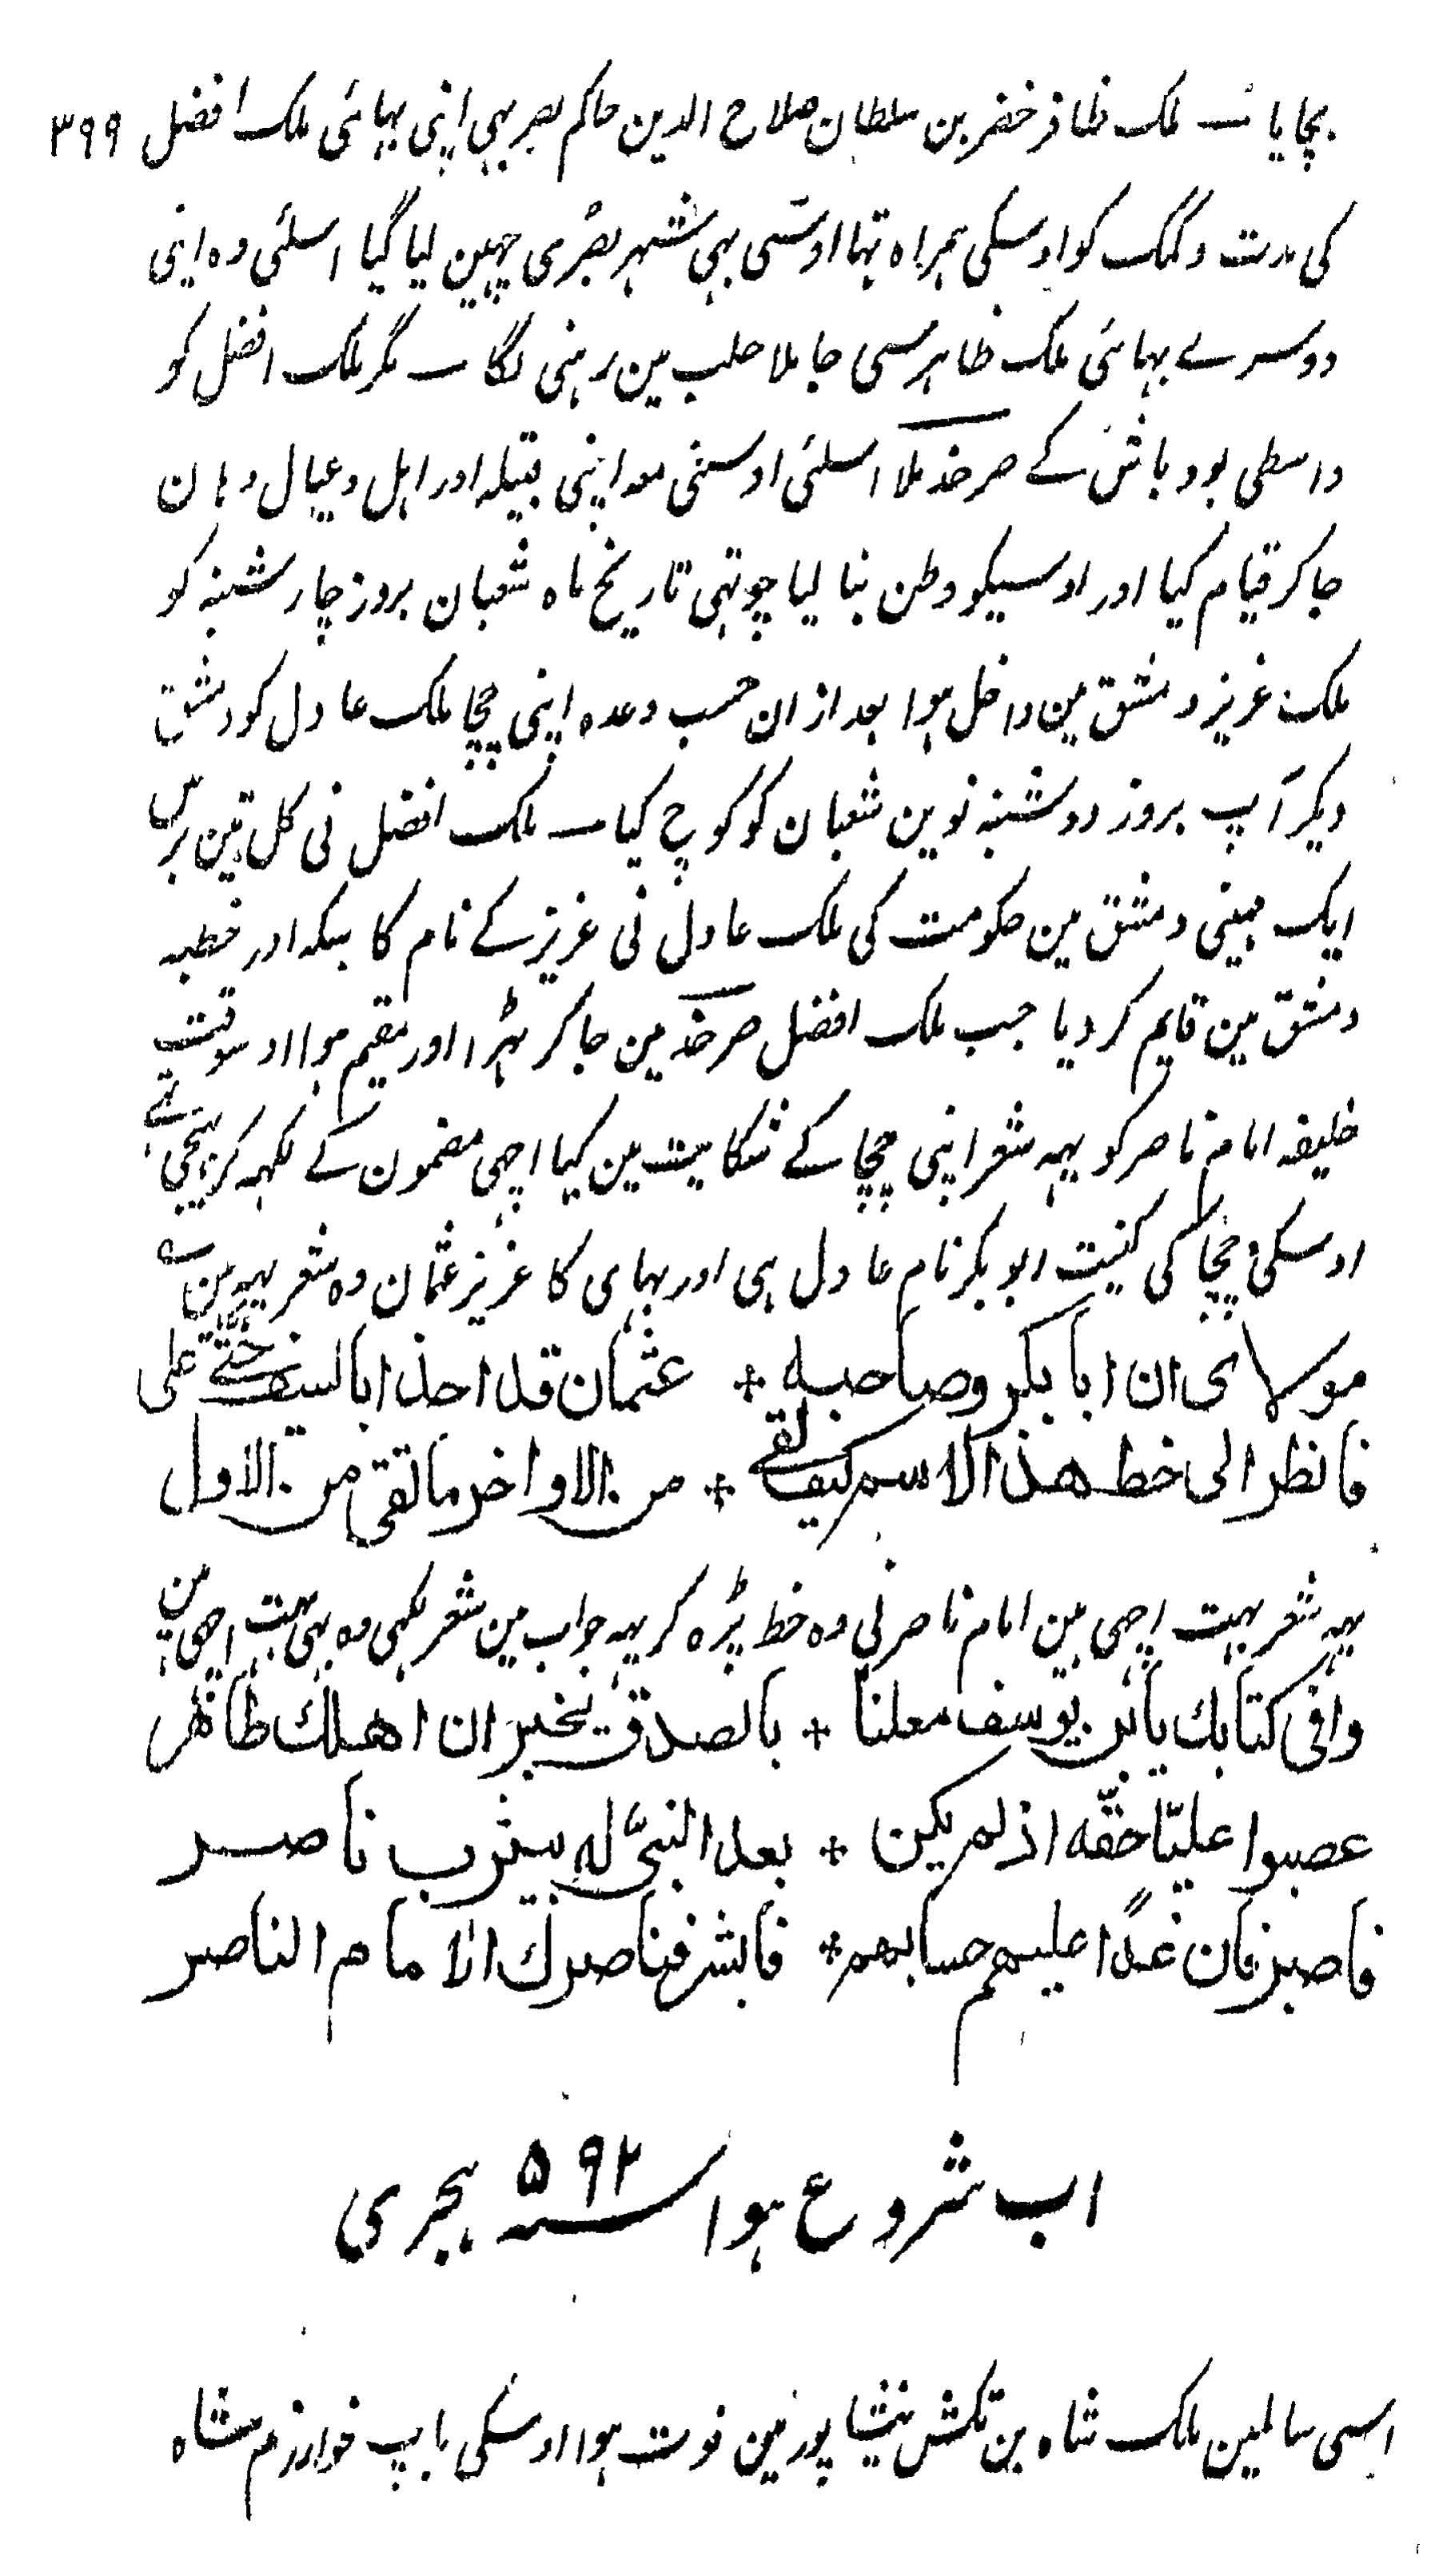 ۳۹۹
بچایا ــ ملک ظافر خضر بن سلطان صلاح الدین حاکم بصر بہی اپنی بہائی ملک افضل
کی مدت وکمک کو اوسکی ہمراہ تہا اوسّی بہی شہر بصرٰی چہین لیا گیا اسلئی وہ اپنی
دوسرے بہائی ملک ظاہر سی جا ملا حلب مین رہنی لگا ــ مگر ملک افضل کو
واسطی بود و باش کے صرخد ملا اسلئی اوسنی معہ اپنی قبیلہ اور اہل و عیال وہان
جاکر قیام کیا اور اوسیکو وطن بنا لیا چوتہی تاریخ ماہ شعبان بروز چار شنبہ کو
ملک عزیز دمشق مین داخل ہوا بعد ازان حسب وعدہ اپنی چچا ملک عادل کو دمشق
دیکر آپ بروز دوشنبہ نوین شعبان کو کوچ کیا ــ ملک افضل نی کل تین برس
ایک مہینی دمشق مین حکومت کی ملک عادل نی عزیز کے نام کا سکہ اور خطبہ
دمشق مین قایم کر دیا جب ملک افضل صرخد مین جاکر ٹہرا اور مقیم ہوا اوسوقت
خلیفہ امام ناصر کو یہہ شعر اپنی چچا کے شکایت مین کیا اچہی مضمون کے لکہہ کر بہیجی تہے
اوسکی چچا کی کنیت ابو بکر نام عادل ہی اور بہای کا عزیز عثمان وہ شعر یہہ مین ــہ
مولای ان ابا بکر وصاحبہ + عثمان قد اخذ ابالسیف حق علی
فانظر الی خط ھذا الاسم کیف لقی + من الاواخر ما لقی من الاول
یہہ شعر بہت اچہی مین امام ناصر نی وہ خط پڑہ کر یہہ جواب مین شعر لکہی وہ بہی بہت اچہی مین
وافی کتابك یا بن یوسف معلنا + بالصدق یخبر ان اھلك طاھر
غصبوا علیّا حقّه اذ لم یکن + بعد النبیّ له بیثرب ناصر
فاصبر فان غدًا علیہم حسابہم + فابشر فناصرك الامام الناصر
اب شروع ہوا سنہ ۵۹۲ ہجری
اسی سالمین ملک شاہ بن تکش نیشاپور مین فوت ہوا اوسکی باپ خوارزم شاہ